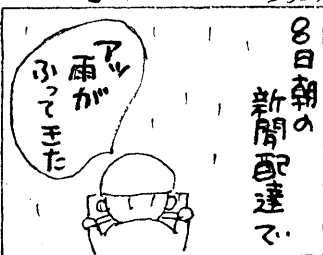 8日朝の
新聞配達で
アッ
雨が
ふってきた